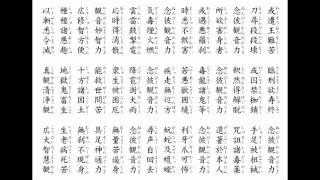 或遭王難苦 臨刑欲寿終 念彼観音力
刀尋段段壊 或囚禁枷鎖 手足被杻械
念彼観音力 釈然得解脱 呪詛諸毒薬
所欲害身者 念彼観音力 還著於本人
或遇悪羅刹 毒龍諸鬼等 念彼観音力
時悉不敢害 若悪獣囲遶 利牙爪可怖
念彼観音力 疾走無辺方 蚖蛇及蝮蠍
気毒煙火燃 念彼観音力 尋声自回去
雲雷鼓掣電 降雹澍大雨 念彼観音力
応時得消散 衆生被困厄 無量苦逼身
観音妙智力 能救世間苦 具足神通力
広修智方便 十方諸国土 無刹不現身
種種諸悪趣 地獄鬼畜生 生老病死苦
以漸悉令滅 真観清浄観 広大智慧観